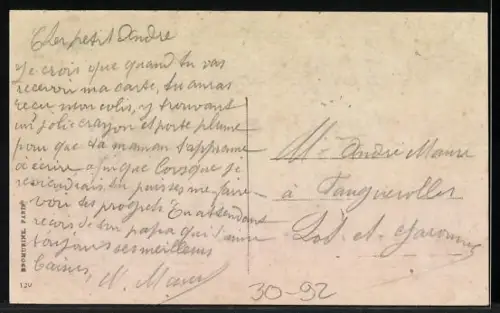 Cher petit André
Je crois que quand tu vas
recevoir ma carte, tu auras
recu mon colis, y trouvant
un joli crayon et porte plume
pour que ta maman t'apprenne
à écrire afin que lorsque je
reviendrais tu puisses me faire
voir tes progrès En attendant
reçois de ton papa qui t'aime
toujours ses meilleurs
baisers,
Mr André Maure
à Fauguerolles
Lot-et-Garonne
BROMURINE, PARIS
120
30-92